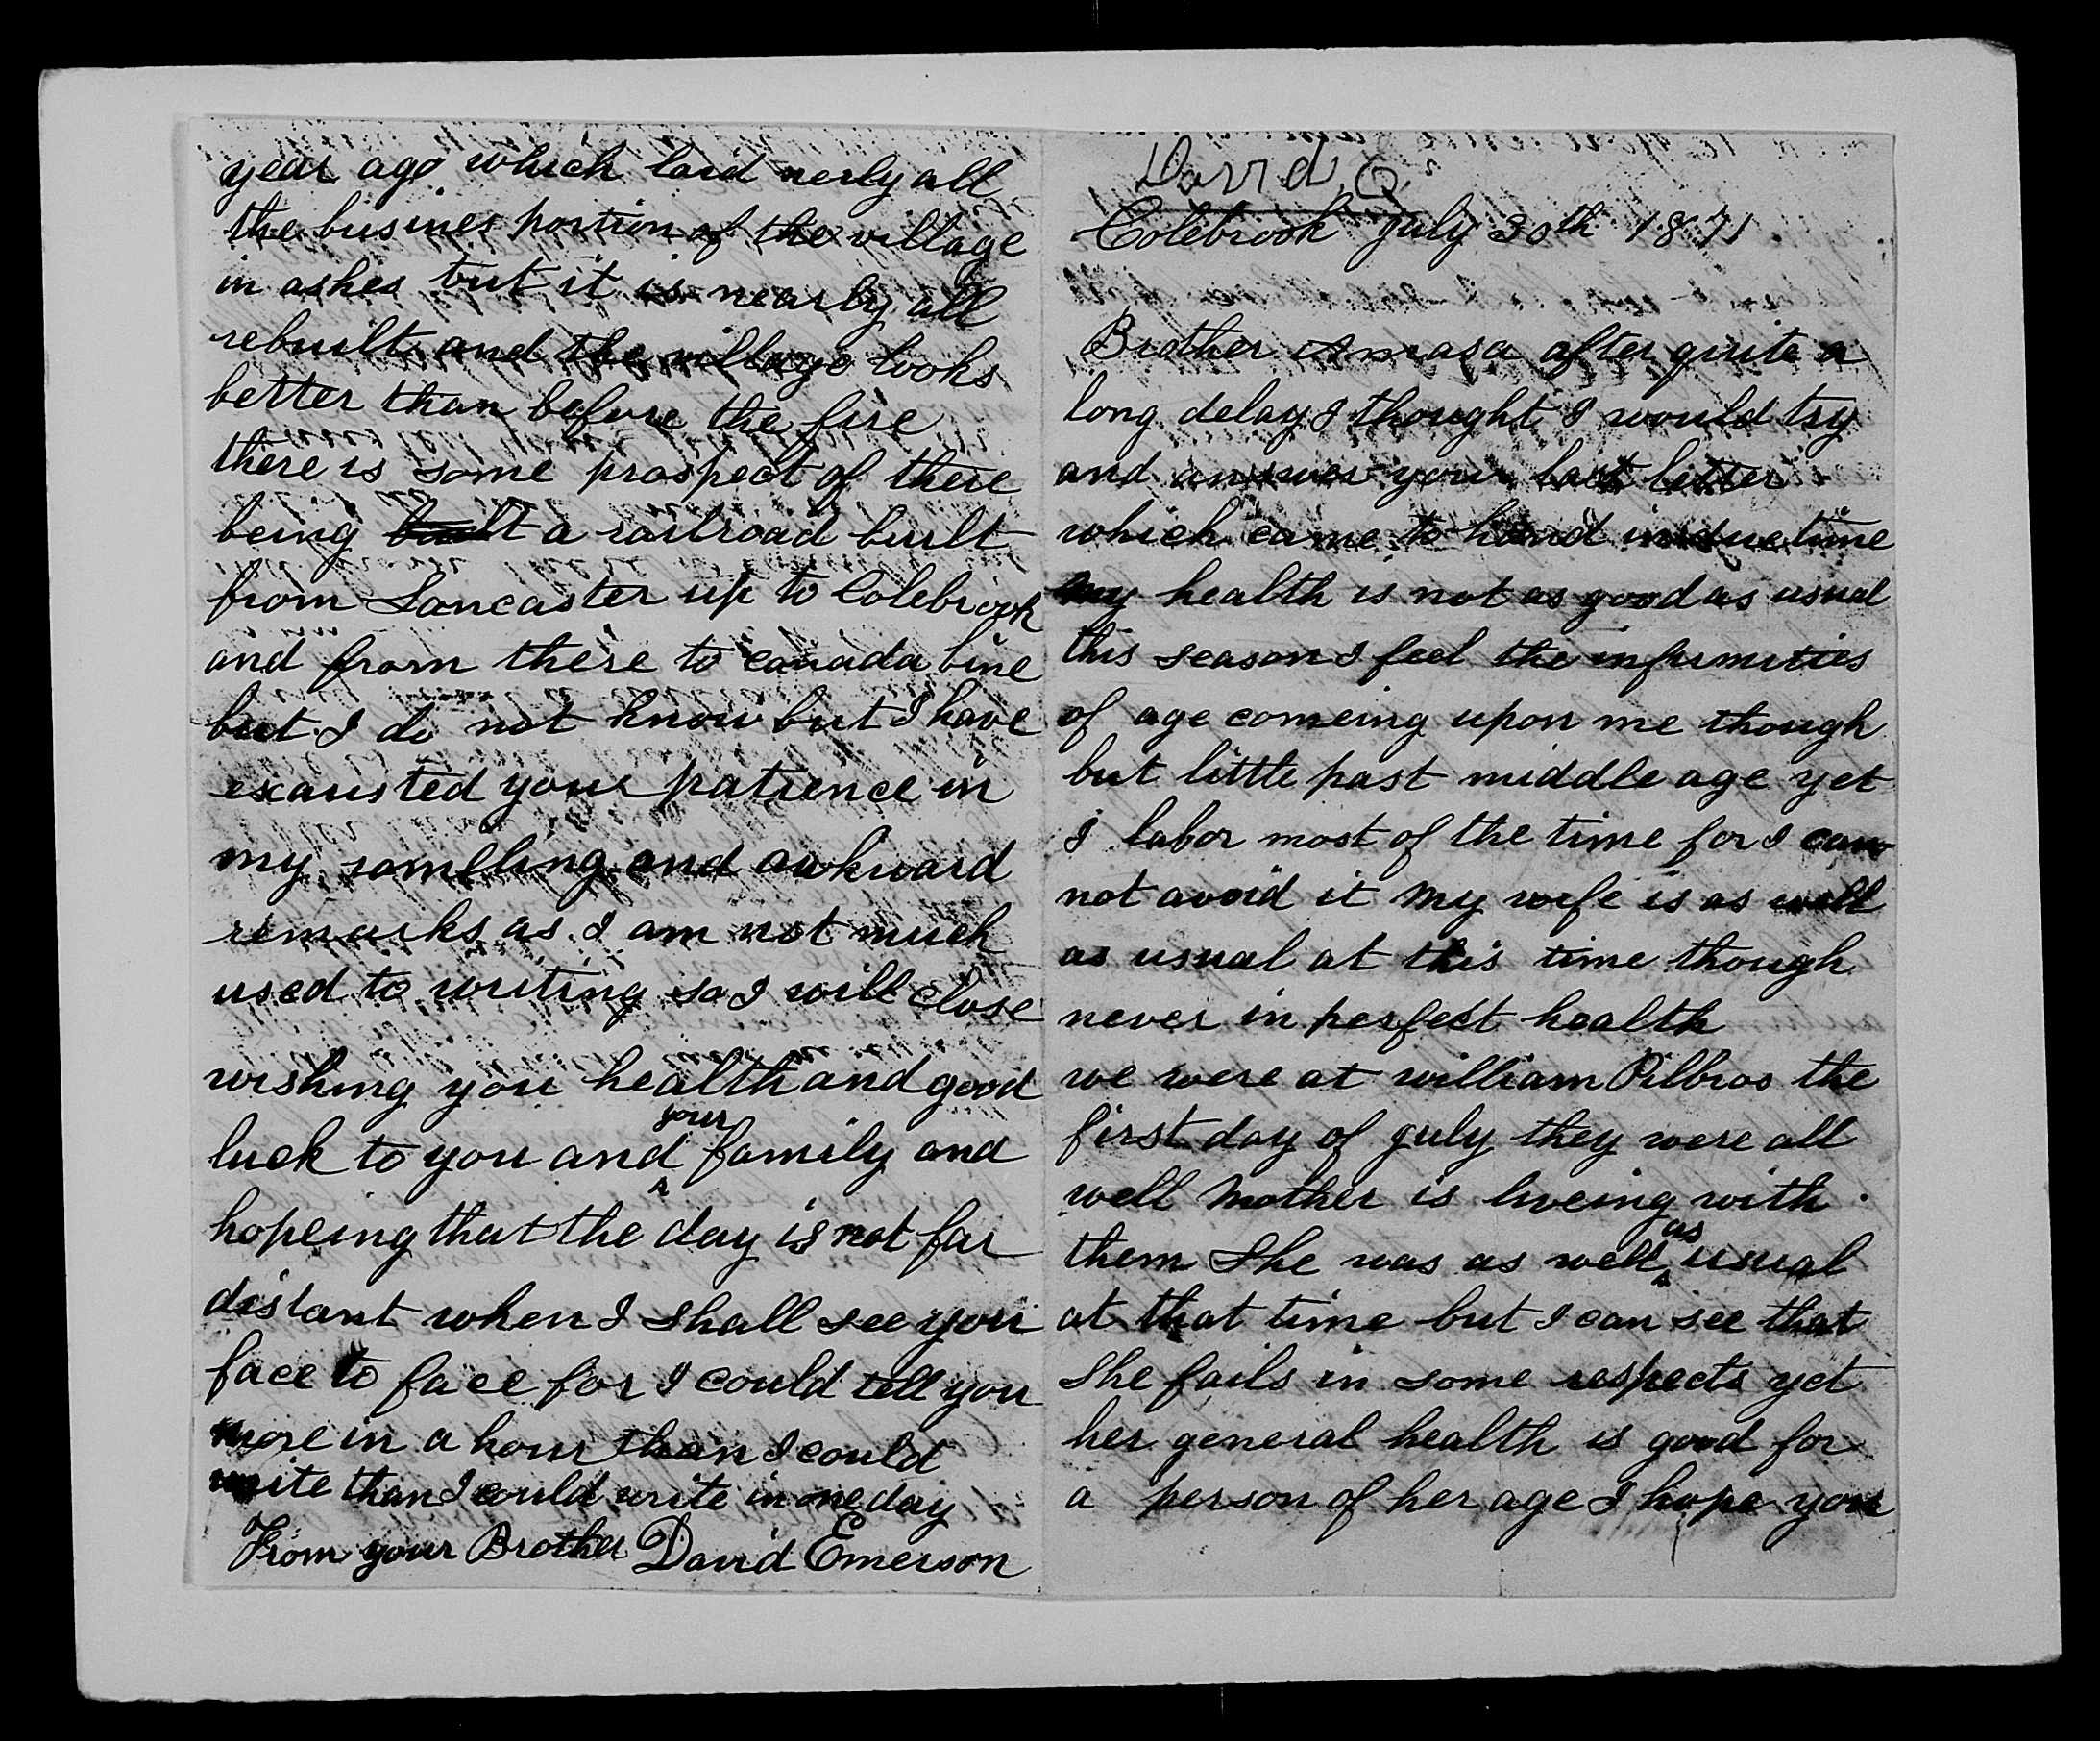 year ago which laid nerly all
the busines portion of the village
in ashes but it is nearly all
rebuilt and the village looks
better than before the fire
there is some prospect of there
being built a railroad built
from Lancaster up to Colebrook
and from there to canada line
but I do not know but I have
exausted your patience in
my rambling and awkward
remarks as I am not much
used to writing so I will close
wishing you health and good
luck to you and your family and
hopeing that the day is not far
distant when I shall see you
face to face for I could tell you
more in a hour than I could
write than I could write in one day
From your Brother David Emerson
David
Colebrook July 30th 1871
Brother Amasa after quite a
long delay I thought I would try
and answer your last letter
which came to hand in due time
my health is not as good as usual
this season I feel the infirmities
of age comeing upon me though
but little past middle age yet
I labor most of the time for I can
not avoid it my wife is as well
as usual at this time though
never in perfect health
we were at william Pilbros the
first day of july they were all
well Mother is liveing with
them She was as well as usual
at that time but I can see that
She fails in some respects yet
her general health is good for
a person of her age I hope you